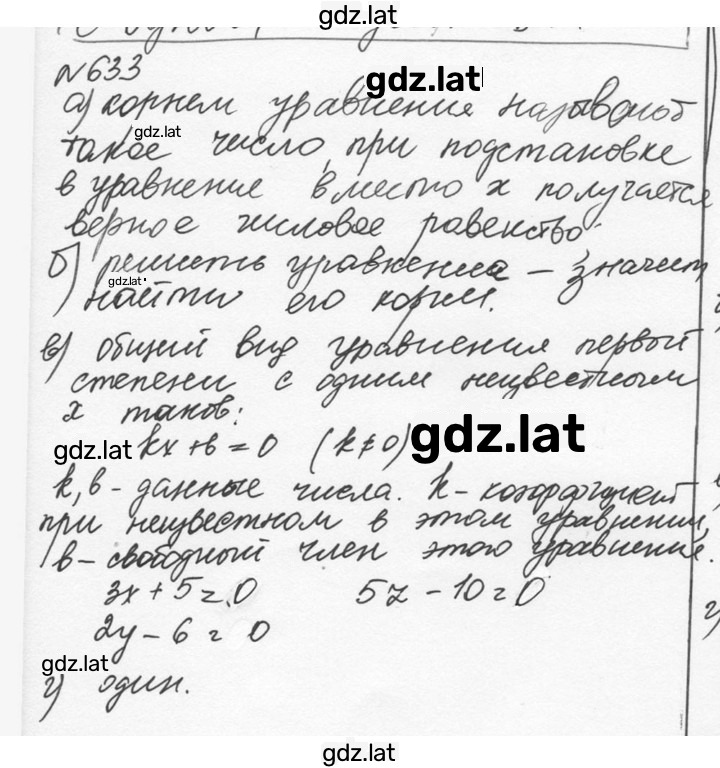 gdz.lat
N633
gdz.lat
а) корнем уравнения называют
gdz.lat
такое число, при подстановке
в уравнение вместо x получается
верное числовое равенство.
б) решить уравнение – значит
gdz.lat
найти его корни.
в) общий вид уравнения первой
степени с одним неизвестным
x таков:
gdz.lat kx + b = 0 (k ≠ 0) gdz.lat
k, b - данные числа. k - коэффициент
при неизвестном в этом уравнении,
b - свободный член этого уравнения.
3x + 5 = 0 5z - 10 = 0
2y - 6 = 0
gdz.lat
г) один.
gdz.lat